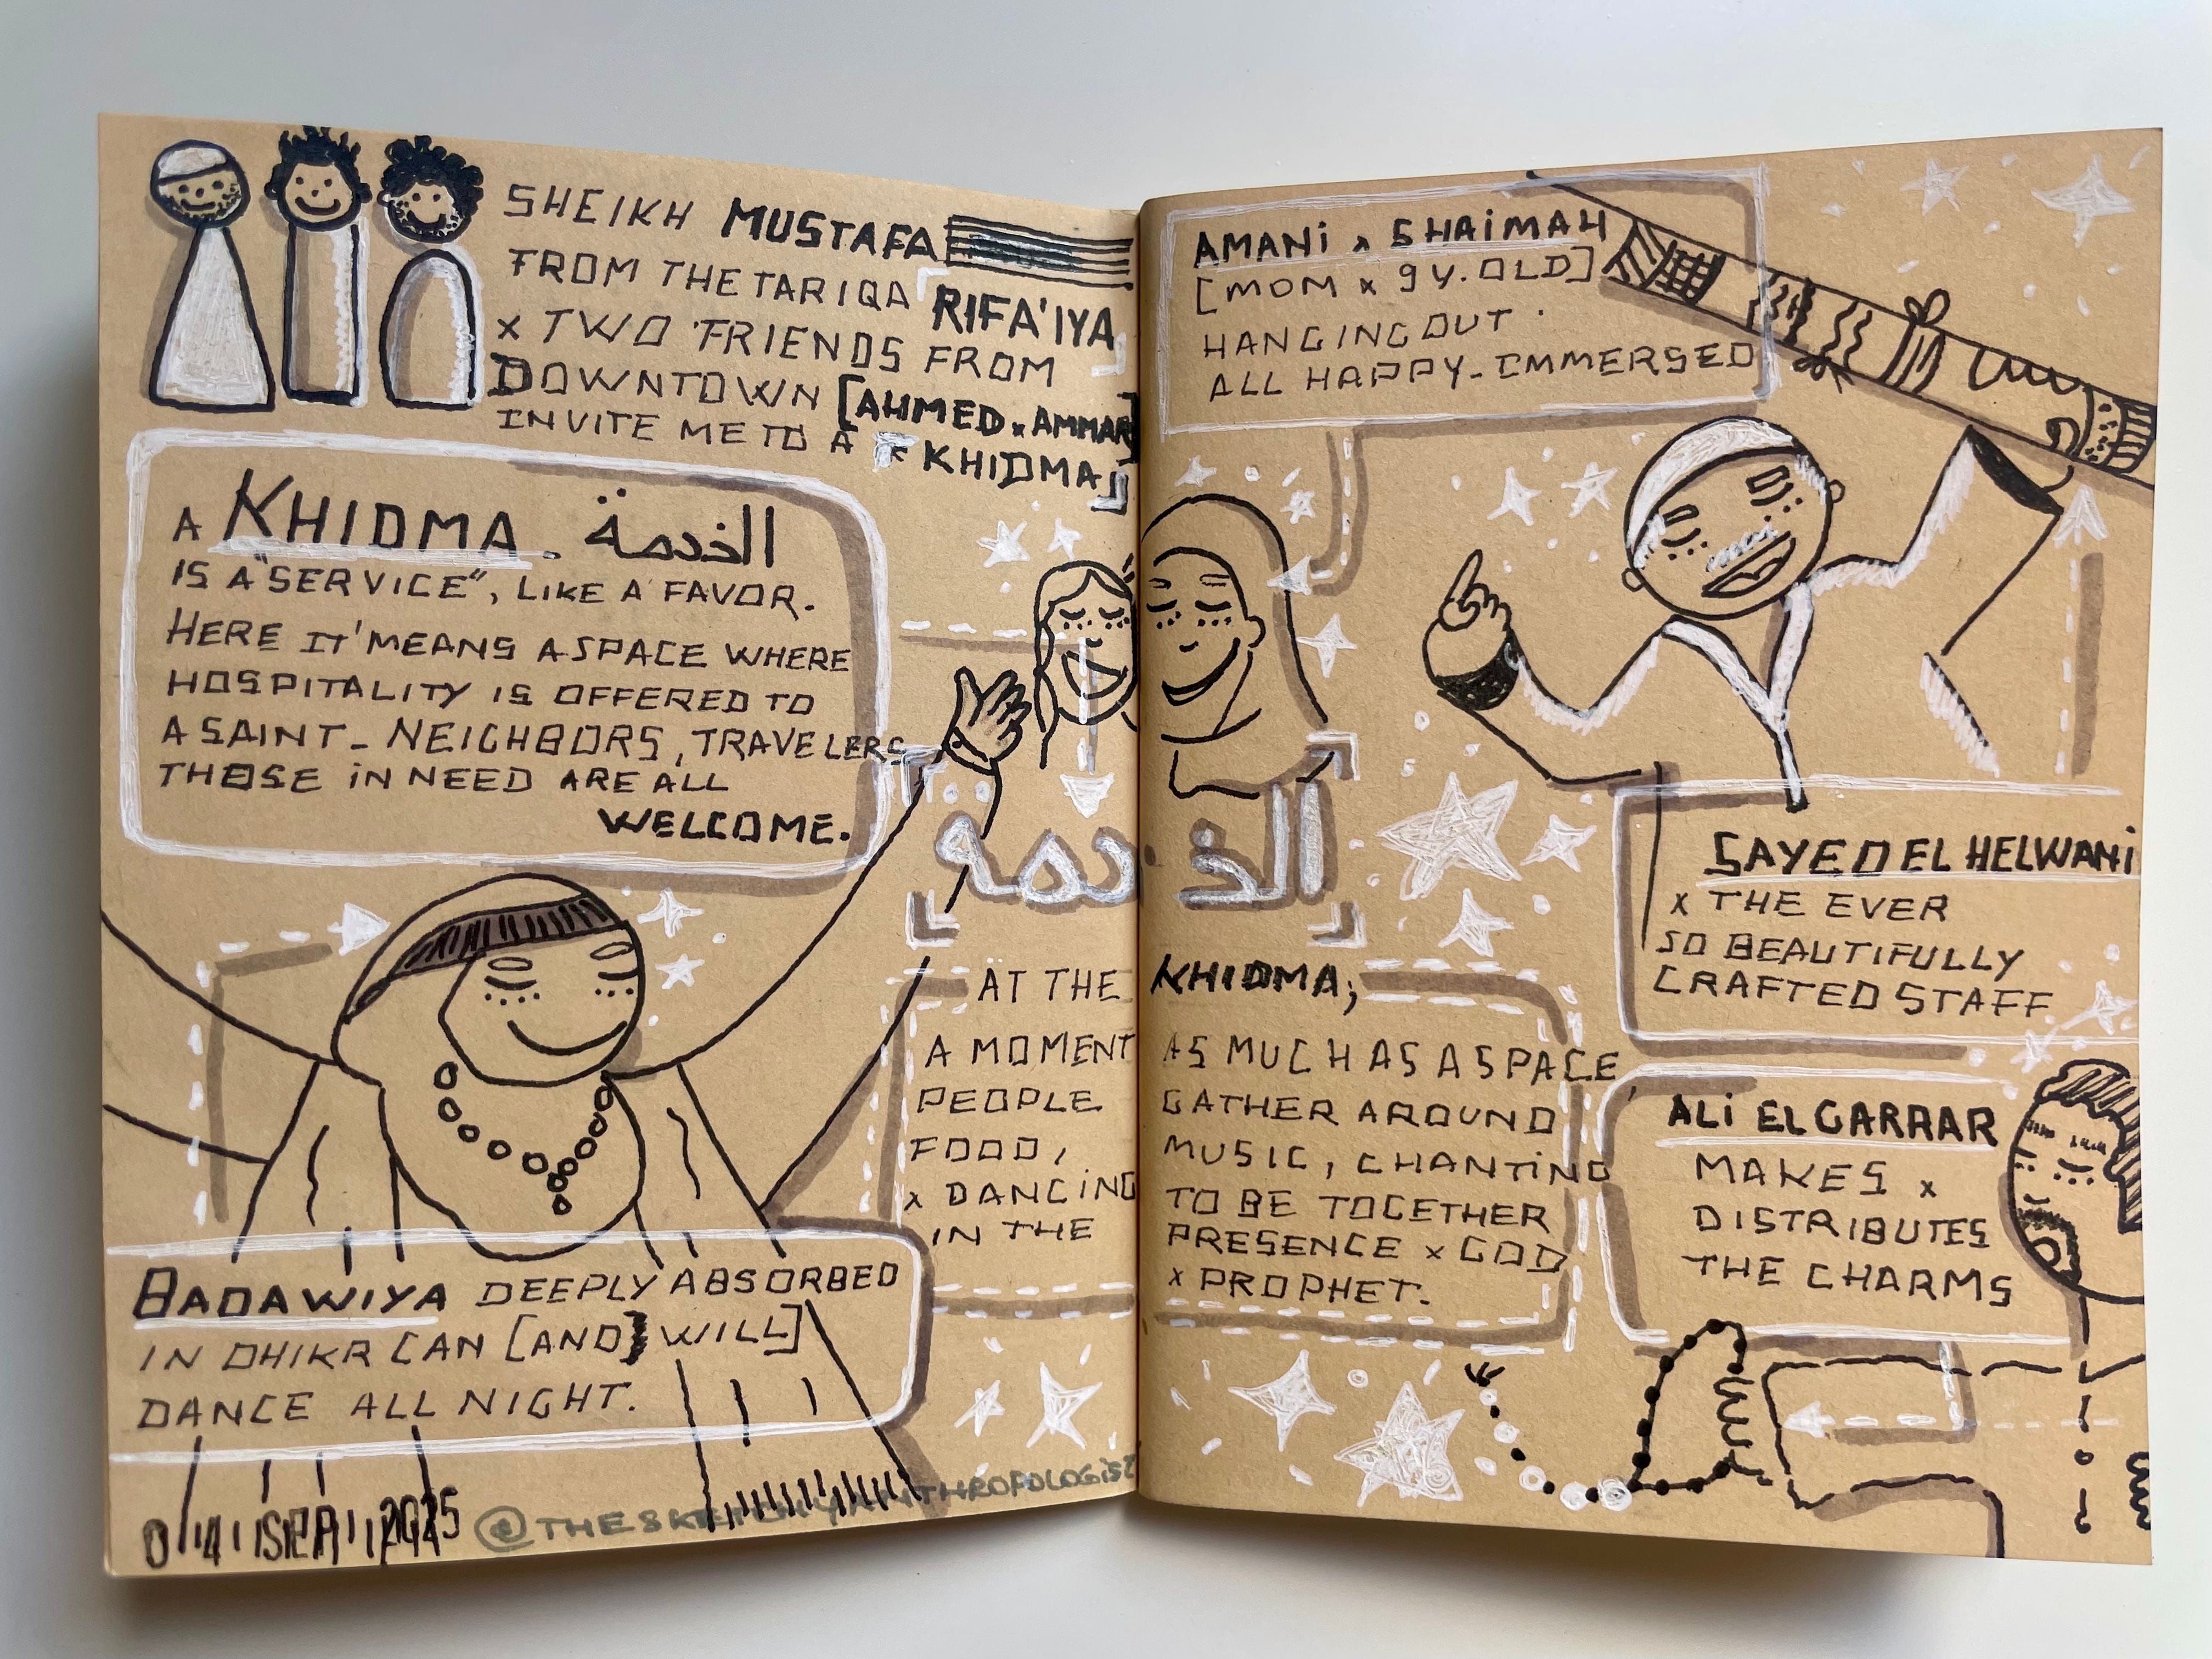 SHEIKH MUSTAFA
FROM THE TARIQA RIFA'IYA
x TWO FRIENDS FROM
DOWNTOWN [AHMED x AMMAR]
INVITE ME TO A KHIDMA
A KHIDMA - الخدمة
IS A "SERVICE", LIKE A FAVOR.
HERE IT MEANS A SPACE WHERE
HOSPITALITY IS OFFERED TO
A SAINT - NEIGHBORS, TRAVELERS
THOSE IN NEED ARE ALL
WELCOME.
BADAWIYA DEEPLY ABSORBED
IN DHIKR CAN [AND] WILL]
DANCE ALL NIGHT.
04 SEP 2025
@THESKETCHYANTHROPOLOGIST
AMANI x SHAIMAH
[MOM x 9 Y. OLD]
HANGING OUT.
ALL HAPPY - IMMERSED
الخدمة
AT THE KHIDMA;
A MOMENT AS MUCH AS A SPACE,
PEOPLE GATHER AROUND
FOOD, MUSIC, CHANTING
x DANCING TO BE TOGETHER
IN THE PRESENCE x GOD
x PROPHET.
SAYED EL HELWANI
x THE EVER
SO BEAUTIFULLY
CRAFTED STAFF
ALI EL GARRAR
MAKES x
DISTRIBUTES
THE CHARMS